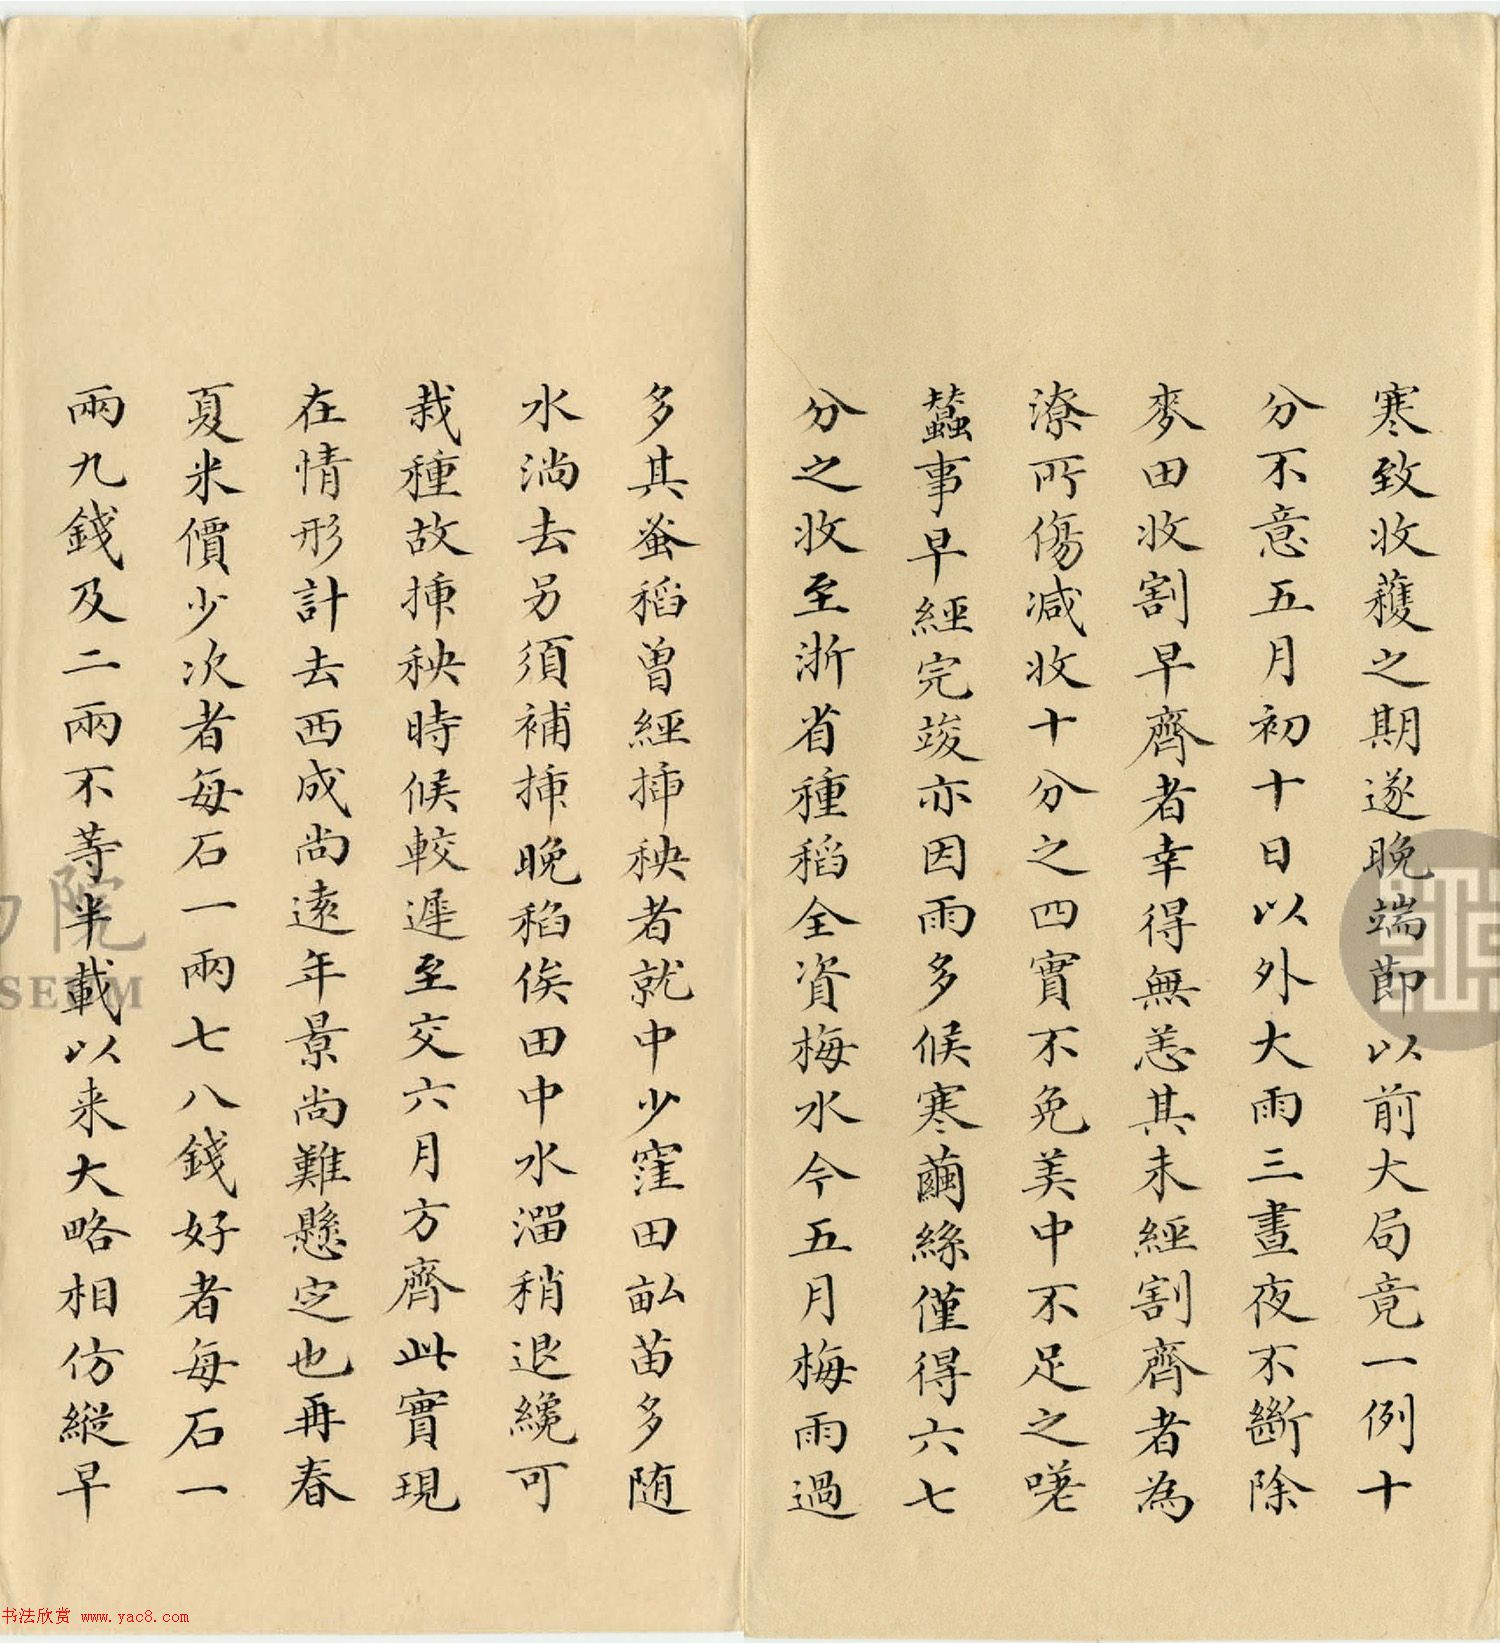 寒致收蘱之期遂晚端節以前大局竟一例十
分不意五月初十日以外大雨三晝夜不斷除
麥田收割早齊者幸得無恙其未經割齊者為
潦所傷減收十分之四實不免美中不足之嘆
蠶事早經完竣亦因雨多候寒繭絲僅得六七
分之收至浙省種稻全資梅水今五月梅雨過
多其蚤稻曾經插秧者就中少窪田畝苗多随
水淌去另須補插晚稻俟田中水溜稍退纔可
栽種故插秧時候較遲至交六月方齊此實現
在情形計去西成尚遠年景尚難懸定也再春
夏米價少次者每石一兩七八錢好者每石一
兩九錢及二兩不等半載以来大略相仿縱早
院
SEUM
书法欣赏 www.yac8.com